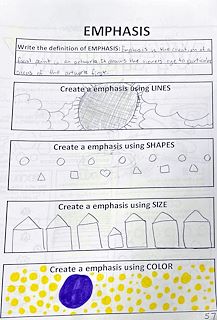 EMPHASIS
Write the definition of EMPHASIS: Emphasis is the creation of a
focal point in an artwork. It draws the viewers eye to
areas of the artwork first.
Create a emphasis using LINES
Create a emphasis using SHAPES
Create a emphasis using SIZE
Create a emphasis using COLOR
57